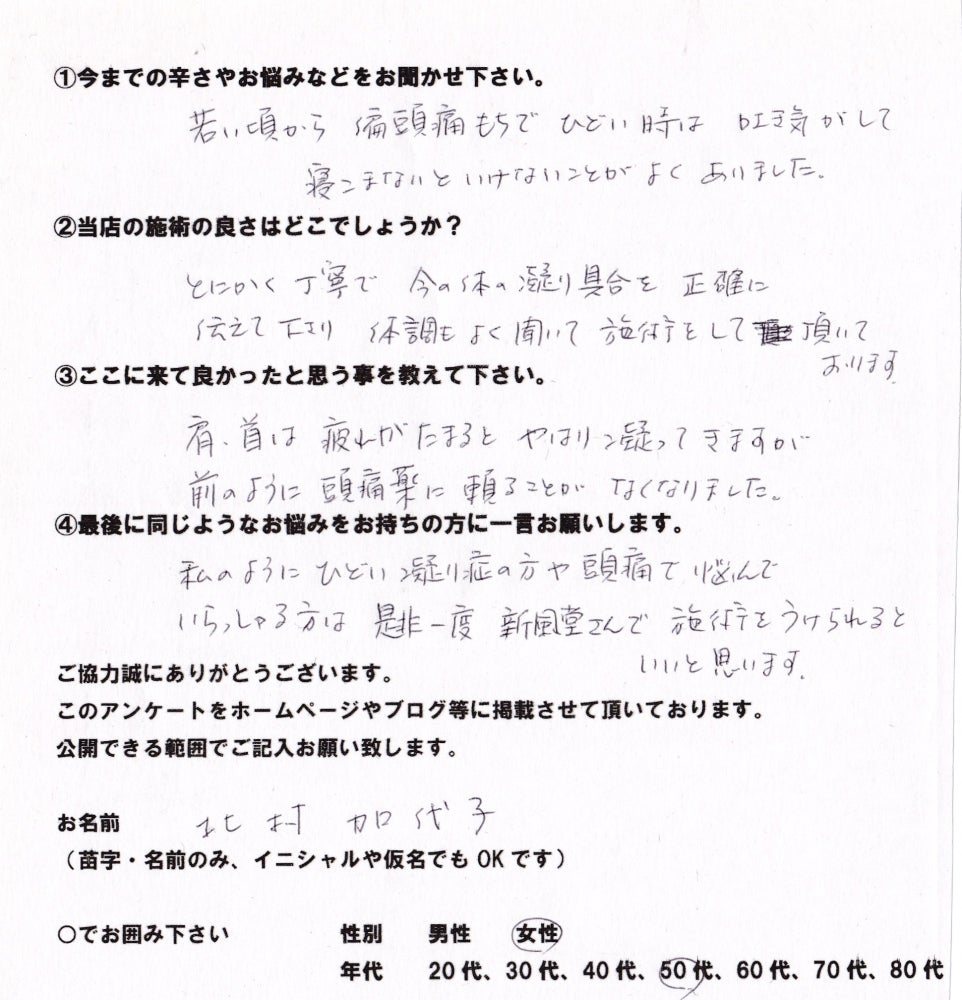 ①今までの辛さやお悩みなどをお聞かせ下さい。
若い頃から 偏頭痛もちで ひどい時は 吐き気がして
寝こまないといけないことが よく ありました。
②当店の施術の良さはどこでしょうか？
とにかく丁寧で 今の体の凝り具合を 正確に
伝えて下さり 体調も よく聞いて 施術をして 頂いて
おります
③ここに来て良かったと思う事を教えて下さい。
肩、首は 疲れがたまると やはり凝ってきますが
前のように 頭痛薬に 頼ることが なくなりました。
④最後に同じようなお悩みをお持ちの方に一言お願いします。
私のように ひどい 凝り症の方や 頭痛で 悩んで
いらっしゃる方は 是非一度 新風堂さんで 施術をうけられると
いいと思います。
ご協力誠にありがとうございます。
このアンケートをホームページやブログ等に掲載させて頂いております。
公開できる範囲でご記入お願い致します。
お名前 北村 加代子
（苗字・名前のみ、イニシャルや仮名でも OK です）
○でお囲み下さい 性別 男性 女性
年代 20 代、30 代、40 代、50 代、60 代、70 代、80 代